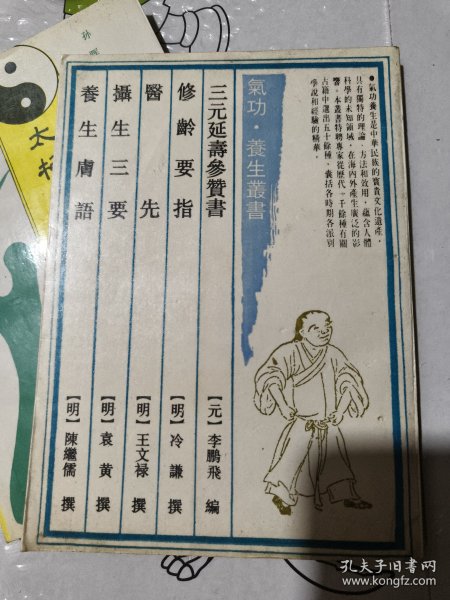 ●氣功養生是中華民族的寶貴文化遺產，
具有獨特的理論、方法和效用，蘊含人體
科學的未知領域，在海內外產生廣泛的影
響。本叢書特聘專家從歷代一千餘種有關
古籍中選出五十餘種，囊括各時期各派別
學說和經驗的精華。
氣功·養生叢書
三元延壽參贊書
【元】李鵬飛 編
修齡要指
【明】冷謙 撰
醫先
【明】王文禄 撰
攝生三要
【明】袁黄 撰
養生膚語
【明】陳繼儒 撰
孙
太
孔夫子旧书网
www.kongfz.com